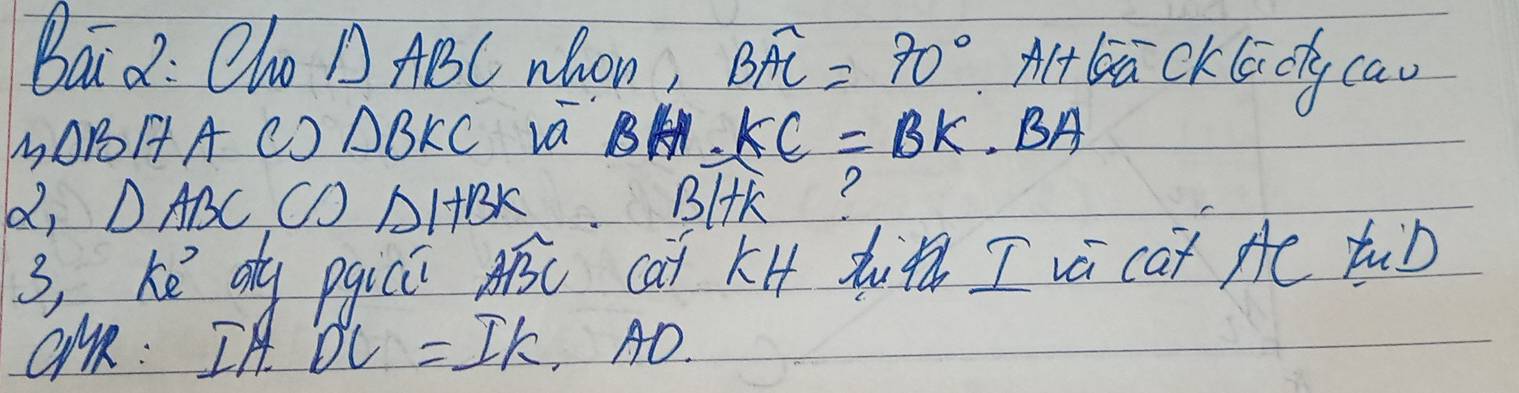 Bài 2: Cho Δ ABC nhọn, BÂC = 70°. AH và CK là đg cao
1, ΔBHA ∽ ΔBKC và BH.KC = BK.BA
2, Δ ABC ∽ ΔHBK. BĤK ?
3, Kẻ đg pgiác AB̂C cắt KH tại I và cắt AC tại D
CMR: IH.DC = IK.AD.